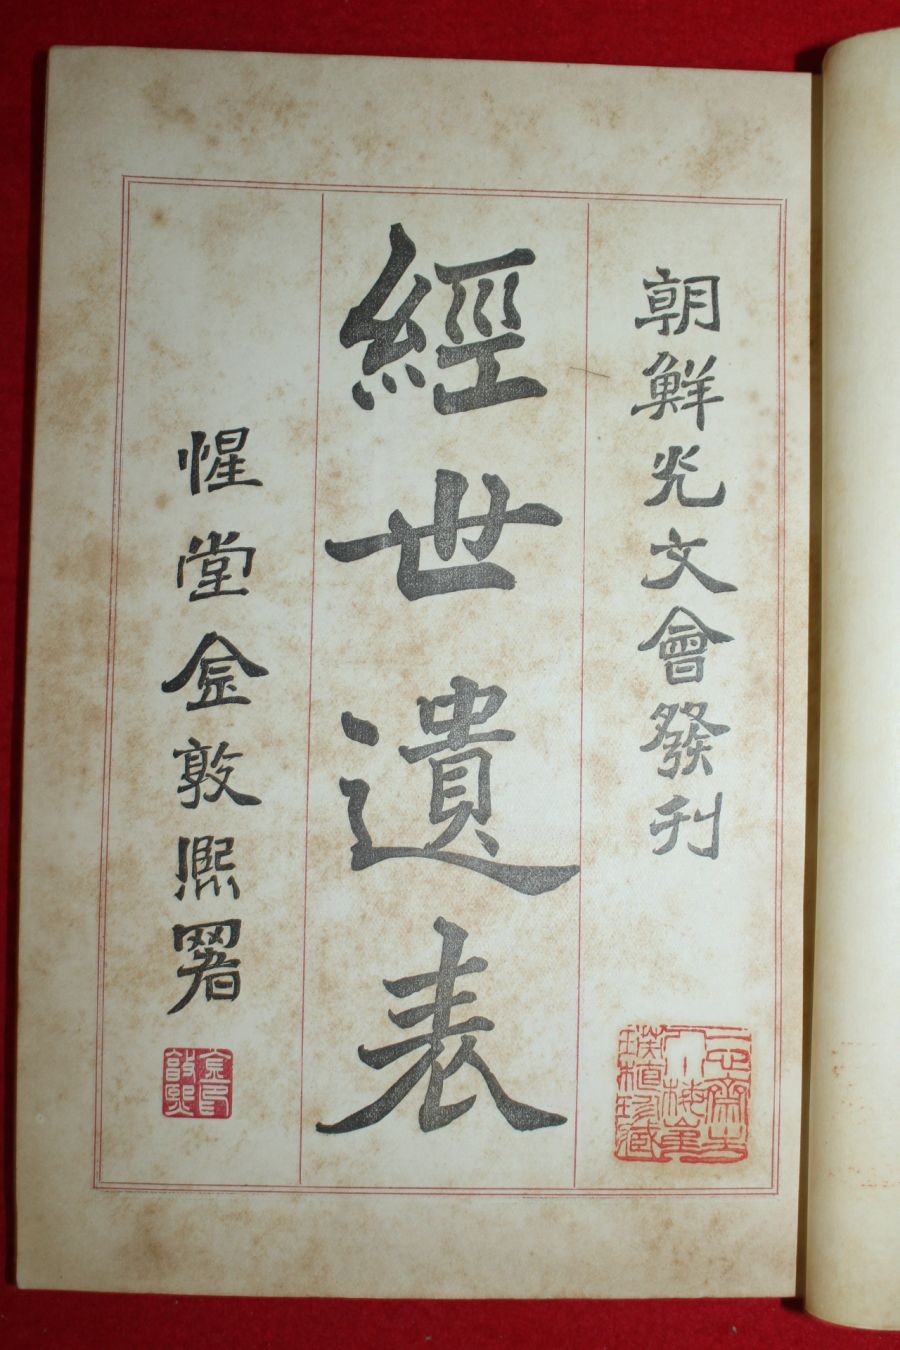 朝鮮光文會發刊
經世遺表
惺堂金敦熙署
金敦熙印